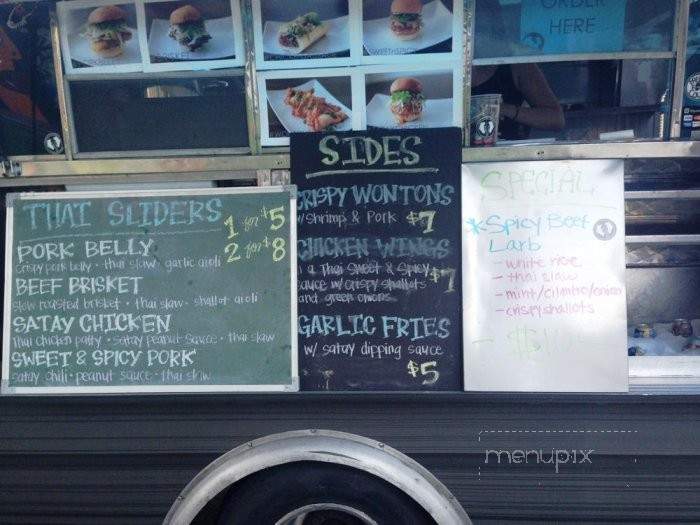 ORDER
HERE
THAI SLIDERS
1 for $5
2 for $8
PORK BELLY
crispy pork belly • thai slaw • garlic aioli
BEEF BRISKET
slow roasted brisket • thai slaw • shallot aioli
SATAY CHICKEN
thai chicken patty • satay peanut sauce • thai slaw
SWEET & SPICY PORK
satay chili • peanut sauce • thai slaw
SIDES
CRISPY WONTONS
w/ Shrimp & Pork $7
CHICKEN WINGS
in a Thai Sweet & Spicy $7
sauce w/ crispy shallots
and green onions
GARLIC FRIES
w/ satay dipping sauce
$5
SPECIAL
* Spicy Beef
Larb
- white rice
- thai slaw
- mint/cilantro/onion
- crispy shallots
menupix